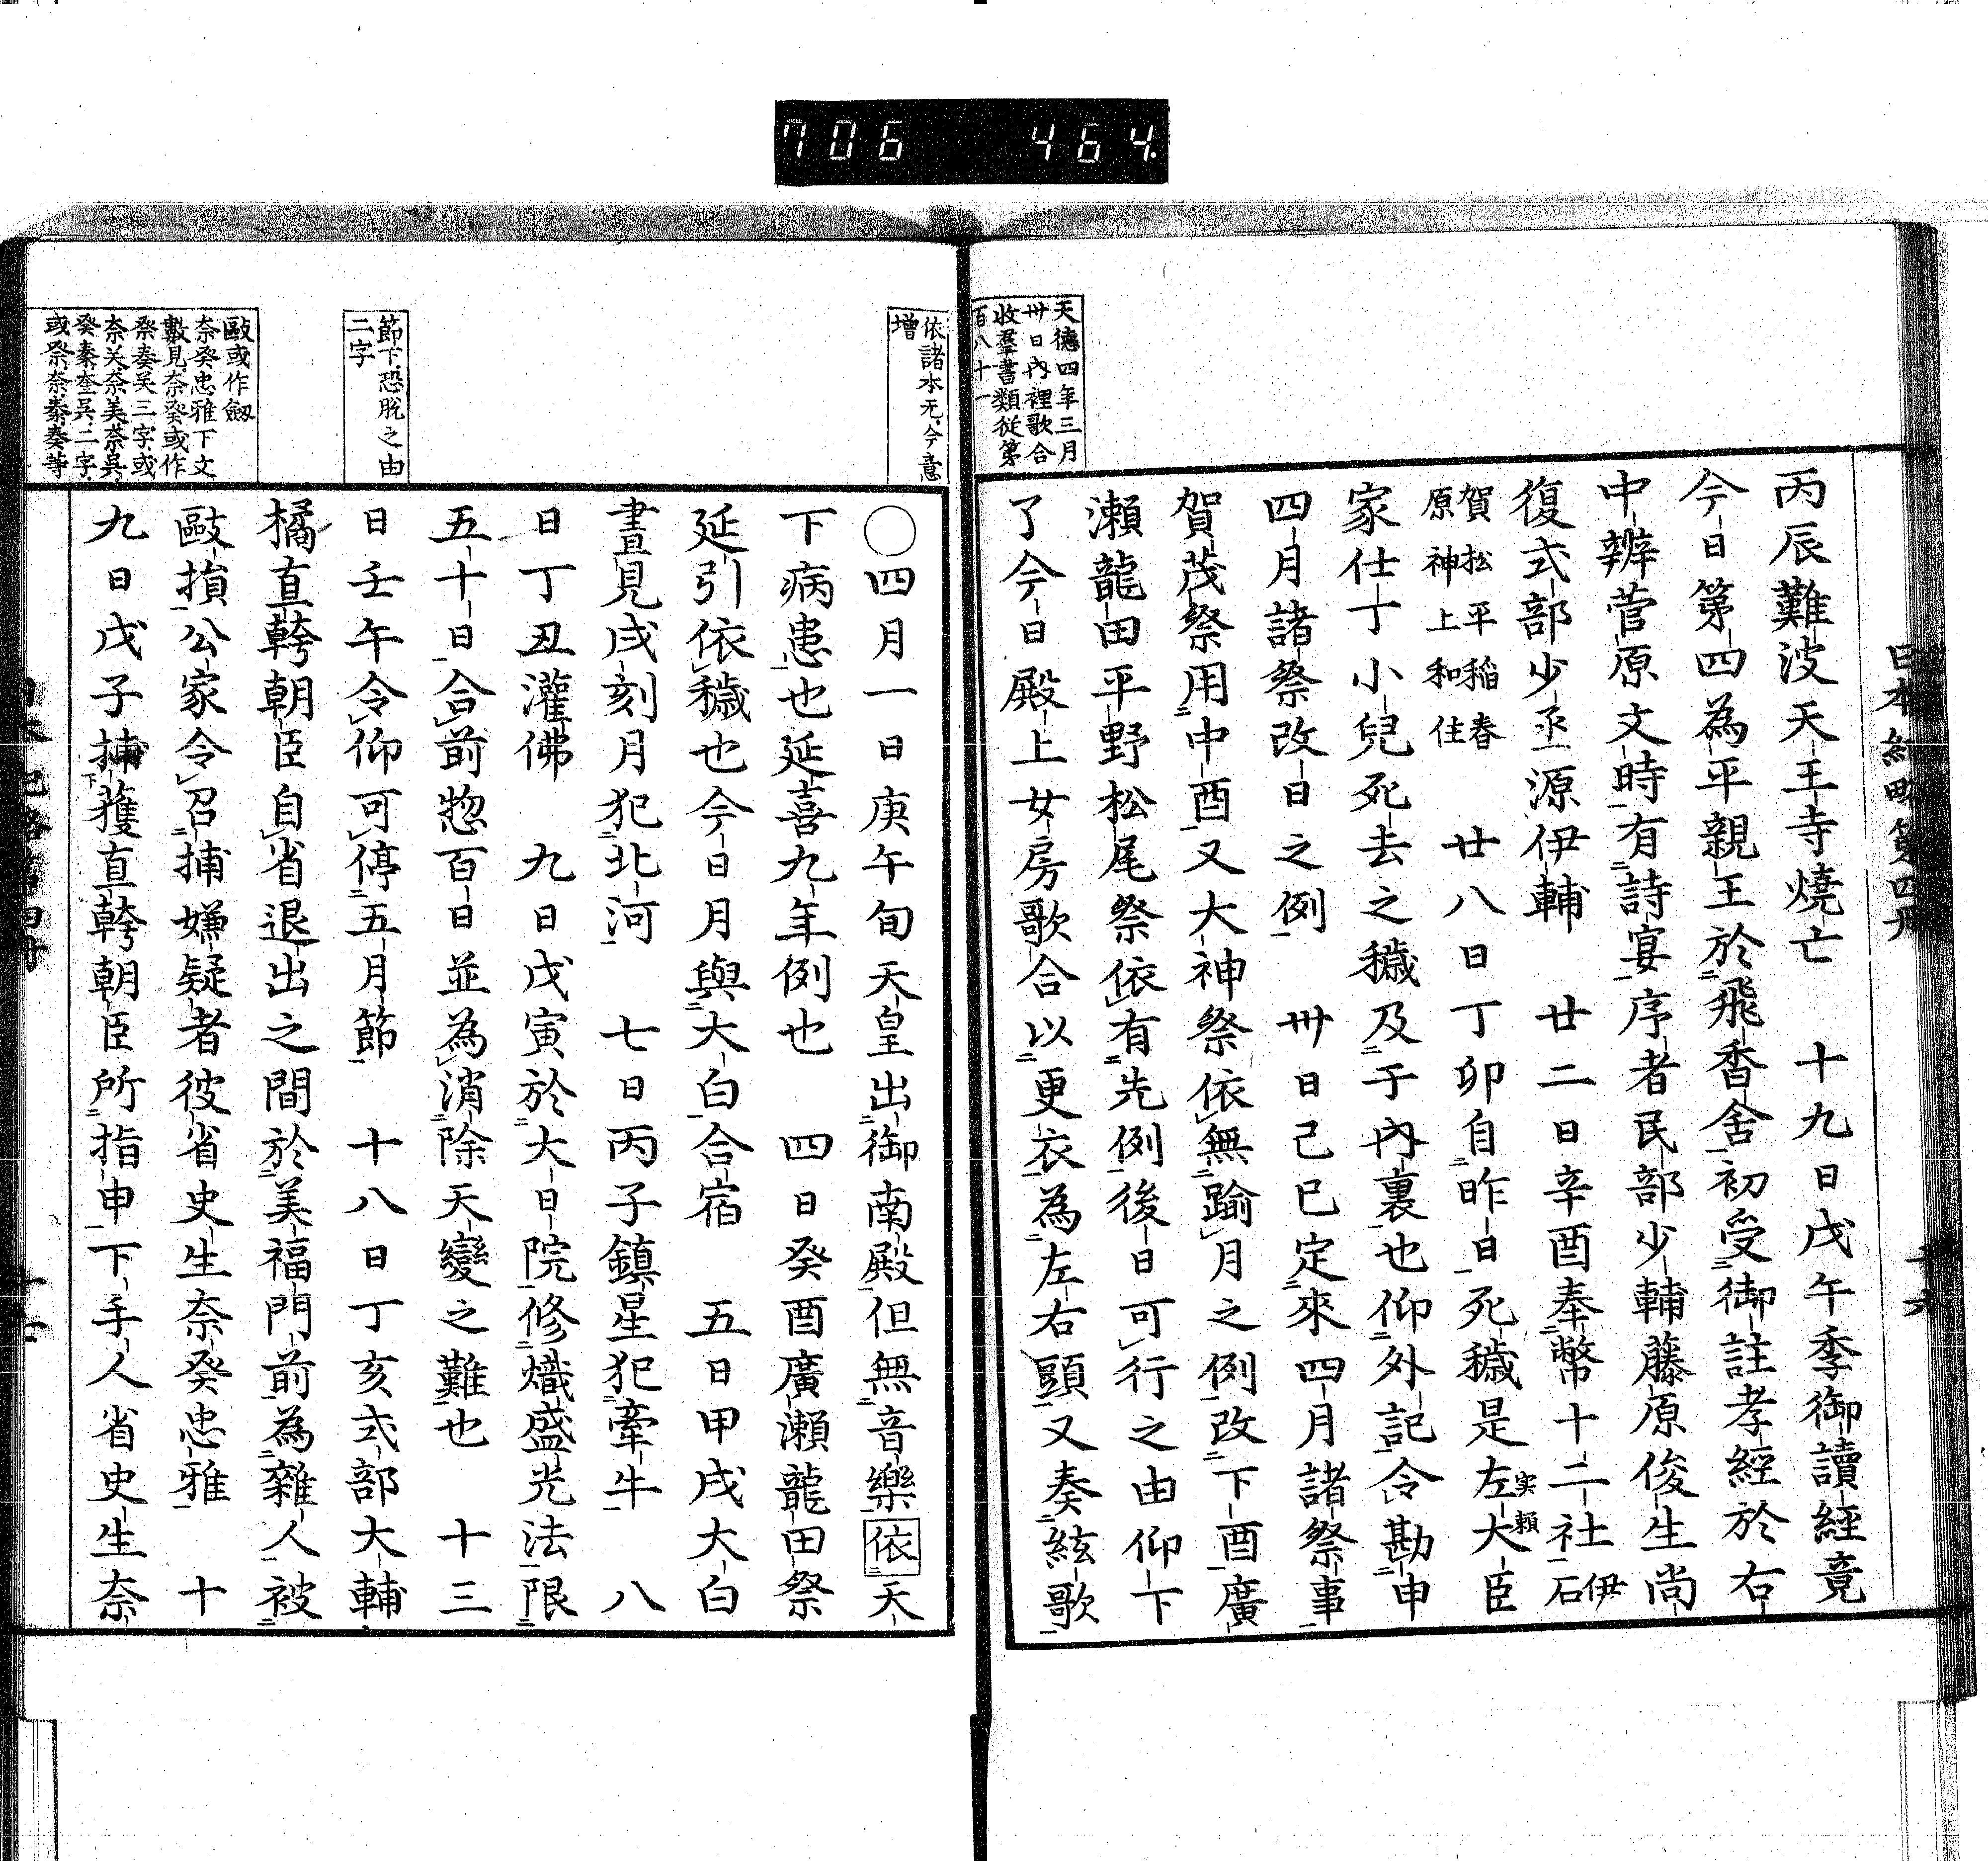 706 464.
日本紀略第四冊
天德四年三月
卅日內裡歌合
收羣書類從第
百八十一
丙辰難波天王寺燒亡 十九日戊午季御讀經竟
今日第四為平親王於飛香舍初受御註孝經於右
中辨菅原文時有詩宴序者民部少輔藤原俊生尚
復式部少丞源伊輔 廿二日辛酉奉幣十二社伊石
賀松平稲春
原神上和住 廿八日丁卯自昨日死穢是左大臣実頼
家仕丁小兒死去之穢及于內裏也仰外記令勘申
四月諸祭改日之例 卅日己巳定來四月諸祭事
賀茂祭用中酉又大神祭依無踰月之例改下酉廣
瀨龍田平野松尾祭依有先例後日可行之由仰下
了今日殿上女房歌合以更衣為左右頭又奏絃歌
依諸本无今意
增
節下恐脫之由
二字
毆或作劔
奈癸忠雅下文
數見奈癸或作
○四月一日庚午旬天皇出御南殿但無音樂依天
下病患也延喜九年例也 四日癸酉廣瀨龍田祭
延引依穢也今日月與大白合宿 五日甲戌大白
晝見戌刻月犯北河 七日丙子鎮星犯牽牛 八
日丁丑灌佛 九日戊寅於大日院修熾盛光法限
五十日合前惣百日並為消除天變之難也 十三
日壬午令仰可停五月節 十八日丁亥式部大輔
橘直幹朝臣自省退出之間於美福門前為雜人被
毆損公家令召捕嫌疑者彼省史生奈癸忠雅 十
九日戊子捕獲直幹朝臣所指申下手人省史生奈